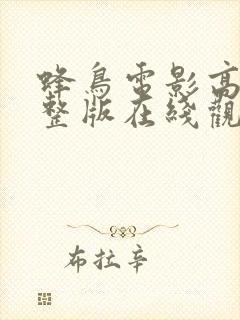 蜂鳥電影高
整版在綫觀
布拉辛